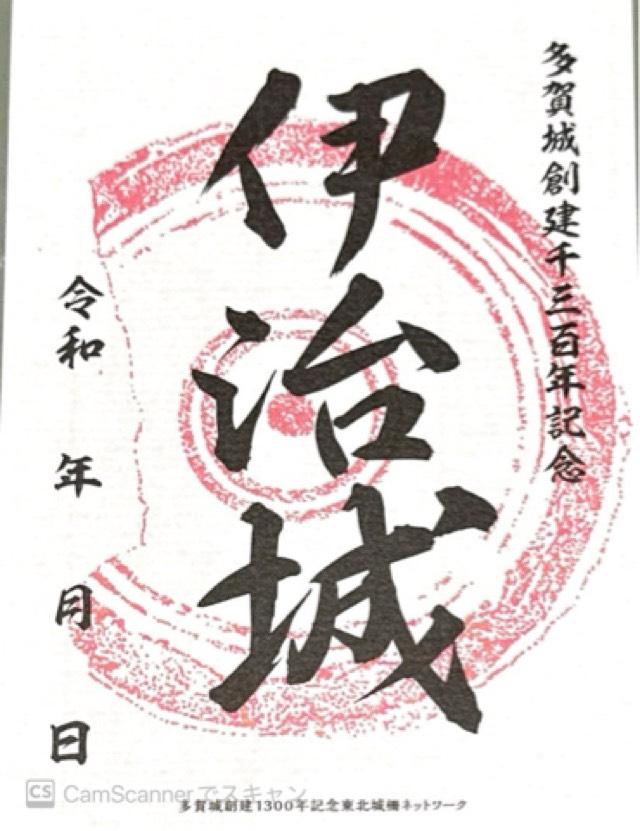 多賀城創建千三百年記念
伊治城
令和 年 月 日
CamScannerでスキャン
多賀城創建1300年記念東北城柵ネットワーク